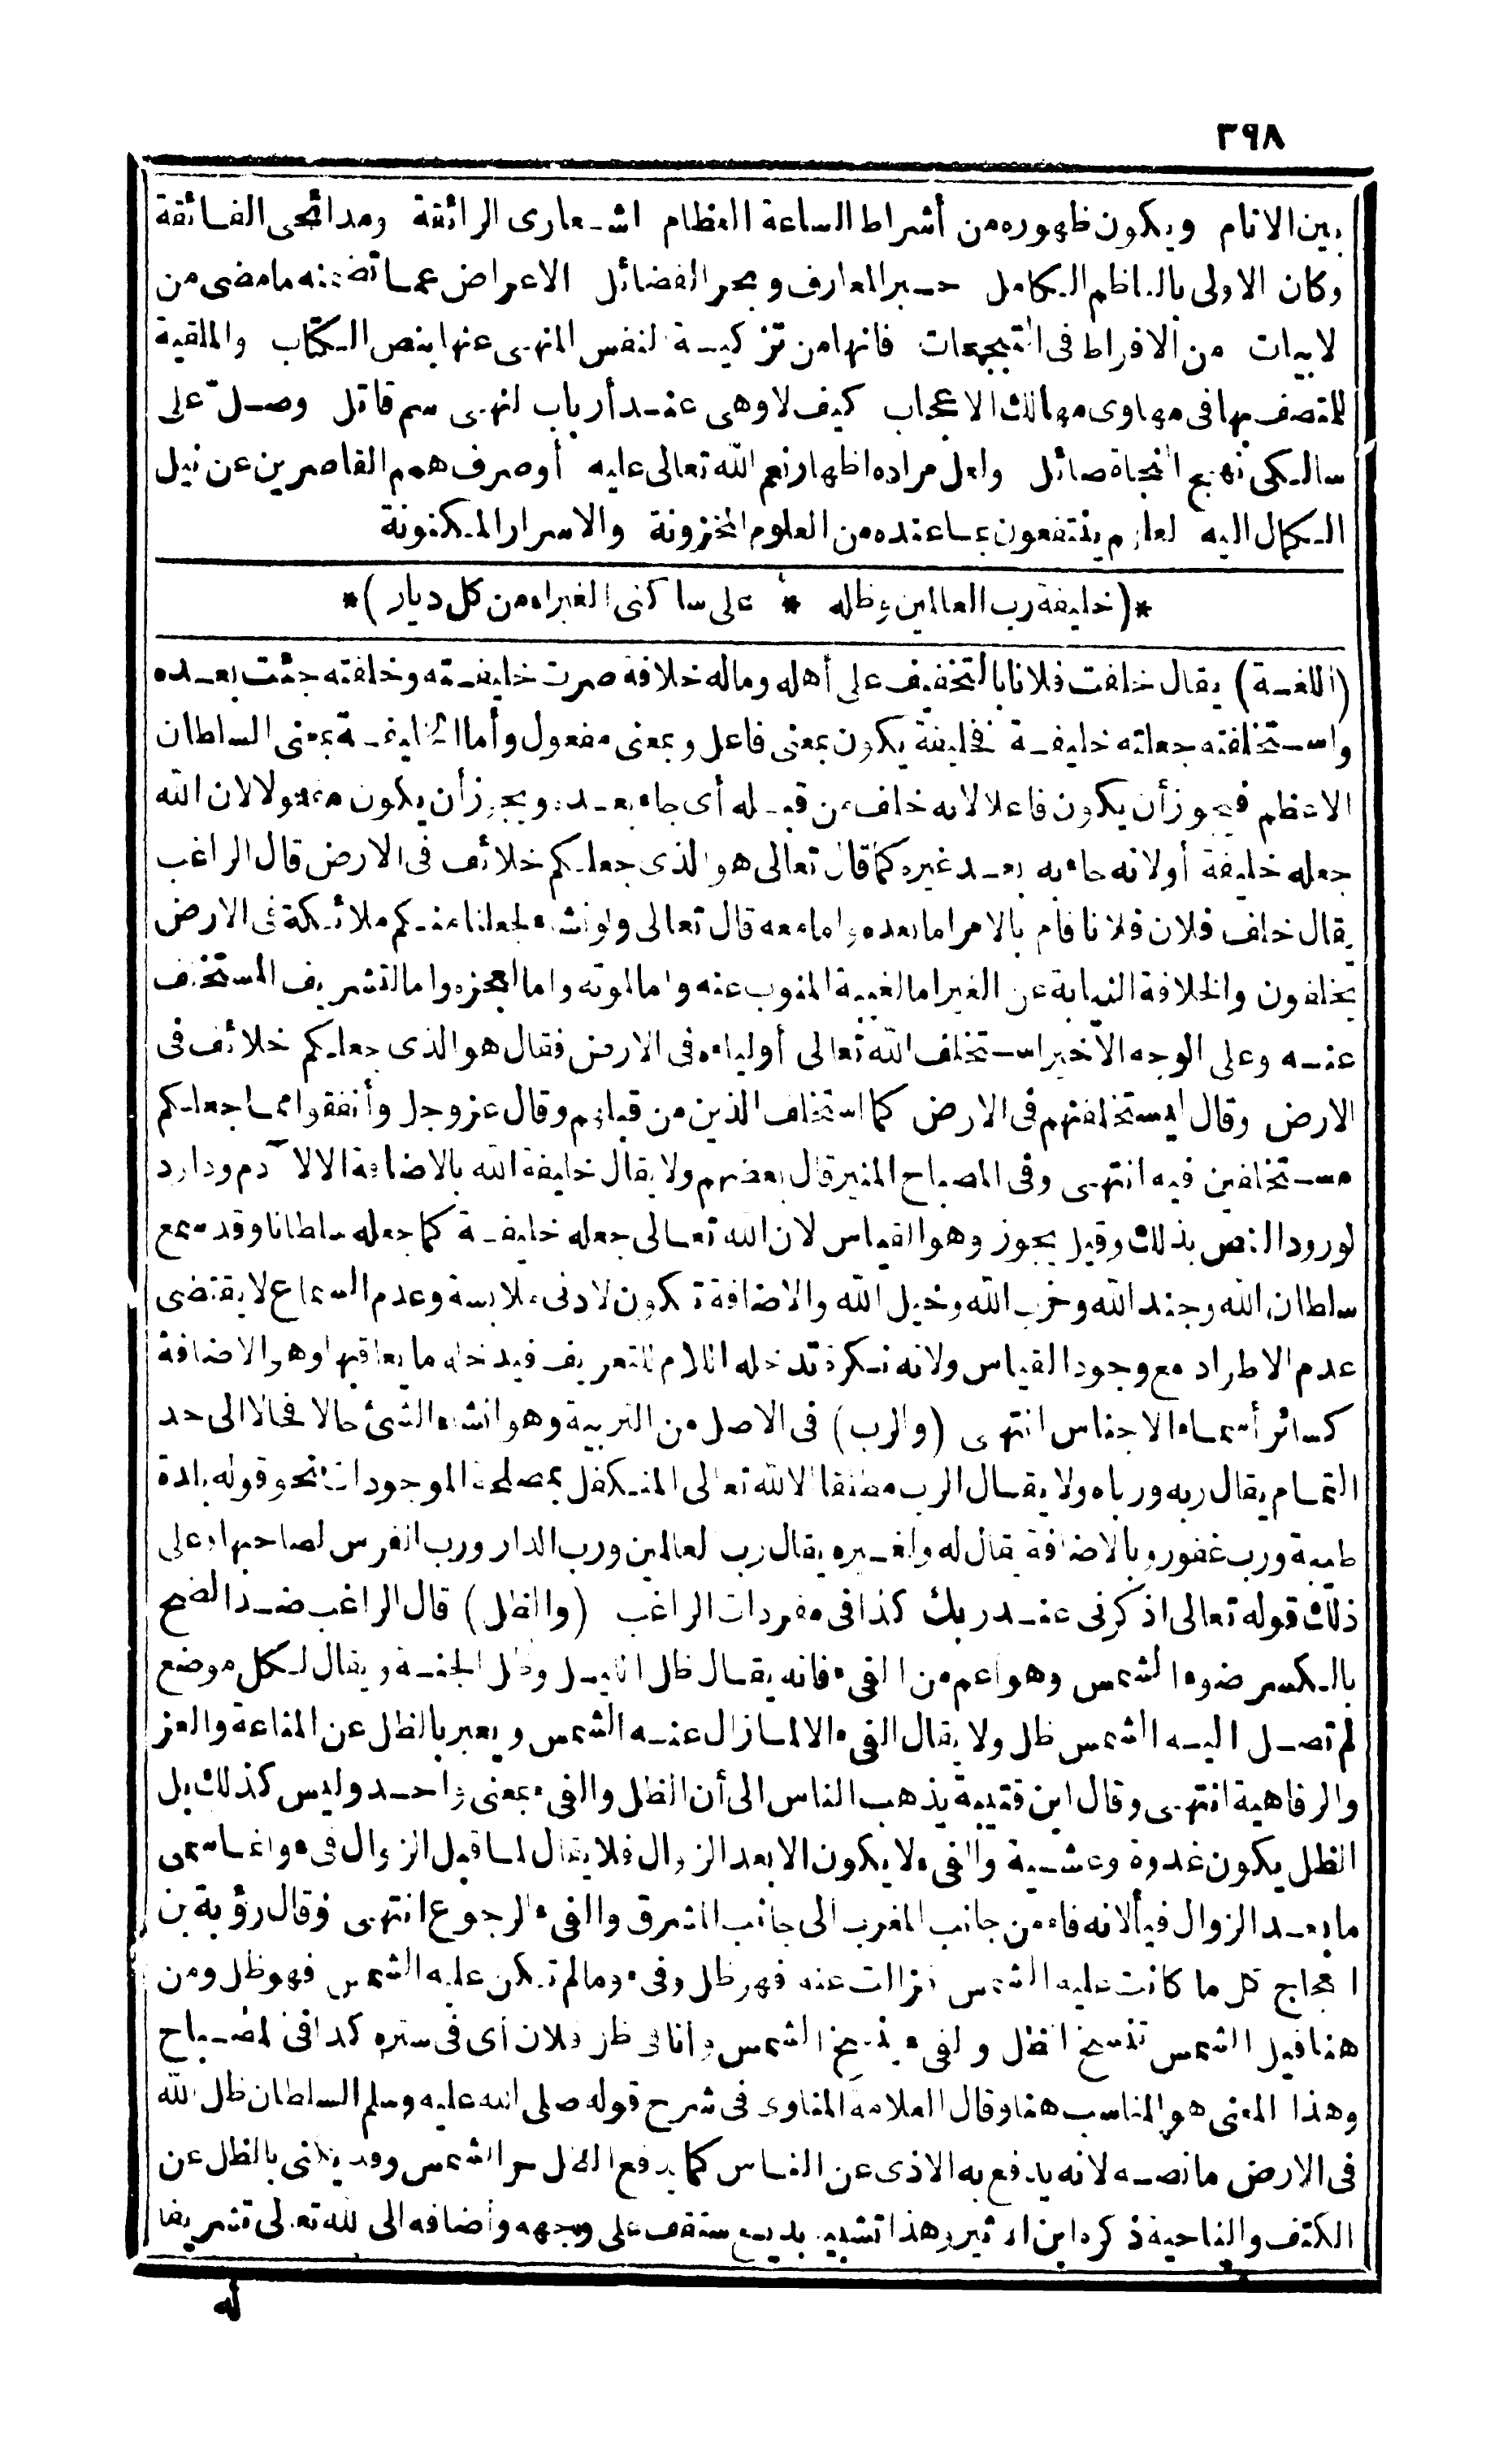 ٣٩٨
بين الانام ويكون ظهوره من أشراط الساعة العظام اشعارى الرائقة ومدائحى الفائقة
وكان الاولى بالناظم الكامل حبر المعارف وبحر الفضائل الاعراض عما تضمنه ما مضى من
لابيات من الافراط فى التبجحات فانها من تزكية لنفس المنهى عنها بنص الكتاب والملقية
للمتصف بها فى مهاوى مهالك الاعجاب كيف لا وهى عند أرباب لنهى سم قاتل وصلّ على
سالكى نهج النجاة صائل ولعل مراده اظهار نعم الله تعالى عليه أو صرف همم القاصرين عن نيل
الكمال اليه لعلهم ينتفعون بما عنده من العلوم المخزونة والاسرار المكنونة
*(خليفة رب العالمين وظله * على ساكنى الغبراء من كل ديار)*
(اللغة) يقال خلفت فلانا بالتخفيف على أهله وماله خلافة صرت خليفته وخلفته جئت بعده
واستخلفته جعلته خليفة فخليفة يكون بمعنى فاعل وبمعنى مفعول وأما الخليفة بمعنى السلطان
الاعظم فيجوز أن يكون فاعلا لانه خلف من قبله أى جاء بعده ويجوز أن يكون مفعولا لان الله
جعله خليفة أو لانه جاء به بعد غيره كما قال تعالى هو الذى جعلكم خلائف فى الارض قال الراغب
يقال خلف فلان فلانا قام بالامر اما بعده واما معه قال تعالى ولو نشاء لجعلنا منكم ملائكة فى الارض
يخلفون والخلافة النيابة عن الغير اما لغيبة المنوب عنه واما لموته واما لعجزه واما لتشريف المستخلف
عنه وعلى الوجه الاخير استخلف الله تعالى أولياءه فى الارض فقال هو الذى جعلكم خلائف فى
الارض وقال ليستخلفنهم فى الارض كما استخلف الذين من قبلهم وقال عز وجل وأنفقوا مما جعلكم
مستخلفين فيه انتهى وفى المصباح المنير قال بعضهم ولا يقال خليفة الله بالاضافة الا لآدم وداود
لورود النص بذلك وقيل يجوز وهو القياس لان الله تعالى جعله خليفة كما جعله سلطانا وقد سمع
سلطان الله وجند الله وحزب الله وخيل الله والاضافة تكون لادنى ملابسة وعدم السماع لا يقتضى
عدم الاطراد مع وجود القياس ولانه نكرة تدخله اللام للتعريف فيدخله ما يعاقبها وهو الاضافة
كسائر أسماء الاجناس انتهى (والرب) فى الاصل من التربية وهو انشاء الشئ حالا فحالا الى حد
التمام يقال ربه ورباه ولا يقال الرب مطلقا الا لله تعالى المتكفل بمصلحة الموجودات نحو قوله بلدة
طيبة ورب غفور وبالاضافة يقال له ولغيره يقال رب لعالمين ورب الدار ورب الفرس لصاحبها وعلى
ذلك قوله تعالى اذكرنى عند ربك كذا فى مفردات الراغب (والظل) قال الراغب ضد الضح
بالكسر ضوء الشمس وهو أعم من الفىء فانه يقال ظل الليل وظل الجنة ويقال لكل موضع
لم تصل اليه الشمس ظل ولا يقال الفىء الا لما زال عنه الشمس ويعبر بالظل عن المناعة والعز
والرفاهية انتهى وقال ابن قتيبة يذهب الناس الى أن الظل والفىء بمعنى واحد وليس كذلك بل
الظل يكون غدوة وعشية والفىء لا يكون الا بعد الزوال فلا يقال لما قبل الزوال فىء وانما سمى
ما بعد الزوال فيألانه فاء من جانب المغرب الى جانب المشرق والفىء الرجوع انتهى وقال رؤبة بن
العجاج كل ما كانت عليه الشمس فزالت عنه فهو ظل وفىء وما لم تكن عليه الشمس فهو ظل ومن
هنا قيل الشمس تنسخ الظل ولفىء ينسخ الشمس وأنا فى ظل فلان أى فى ستره كذا فى لمصباح
وهذا المعنى هو المناسب هنا وقال العلامة المناوى فى شرح قوله صلى الله عليه وسلم السلطان ظل الله
فى الارض ما نصه لانه يدفع به الاذى عن الناس كما يدفع الظل حر الشمس وقد يكنى بالظل عن
الكنف والناحية ذكره ابن الاثير وهذا تشبيه بديع ستقف على وجهه وأضافه الى لله تعالى تشريفا
له